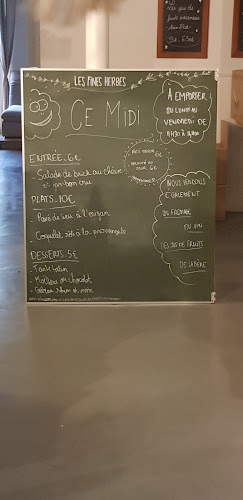 LES FINES HERBES
CE MIDI
ENTRÉE. 6€
- Salade de brick au chèvre
et jambon cru
PLATS. 10€
- Pavé de veau à l'origan
- Coquelet rôti à la
DESSERTS. 5€
- Tarte tatin
- Moelleux au chocolat,
À EMPORTER
DU LUNDI AU
VENDREDI DE
11H30 À
NOUS VENDONS
ÉGALEMENT
DU FROMAGE
DU VIN
DES JUS DE FRUITS
DE LA BIÈRE